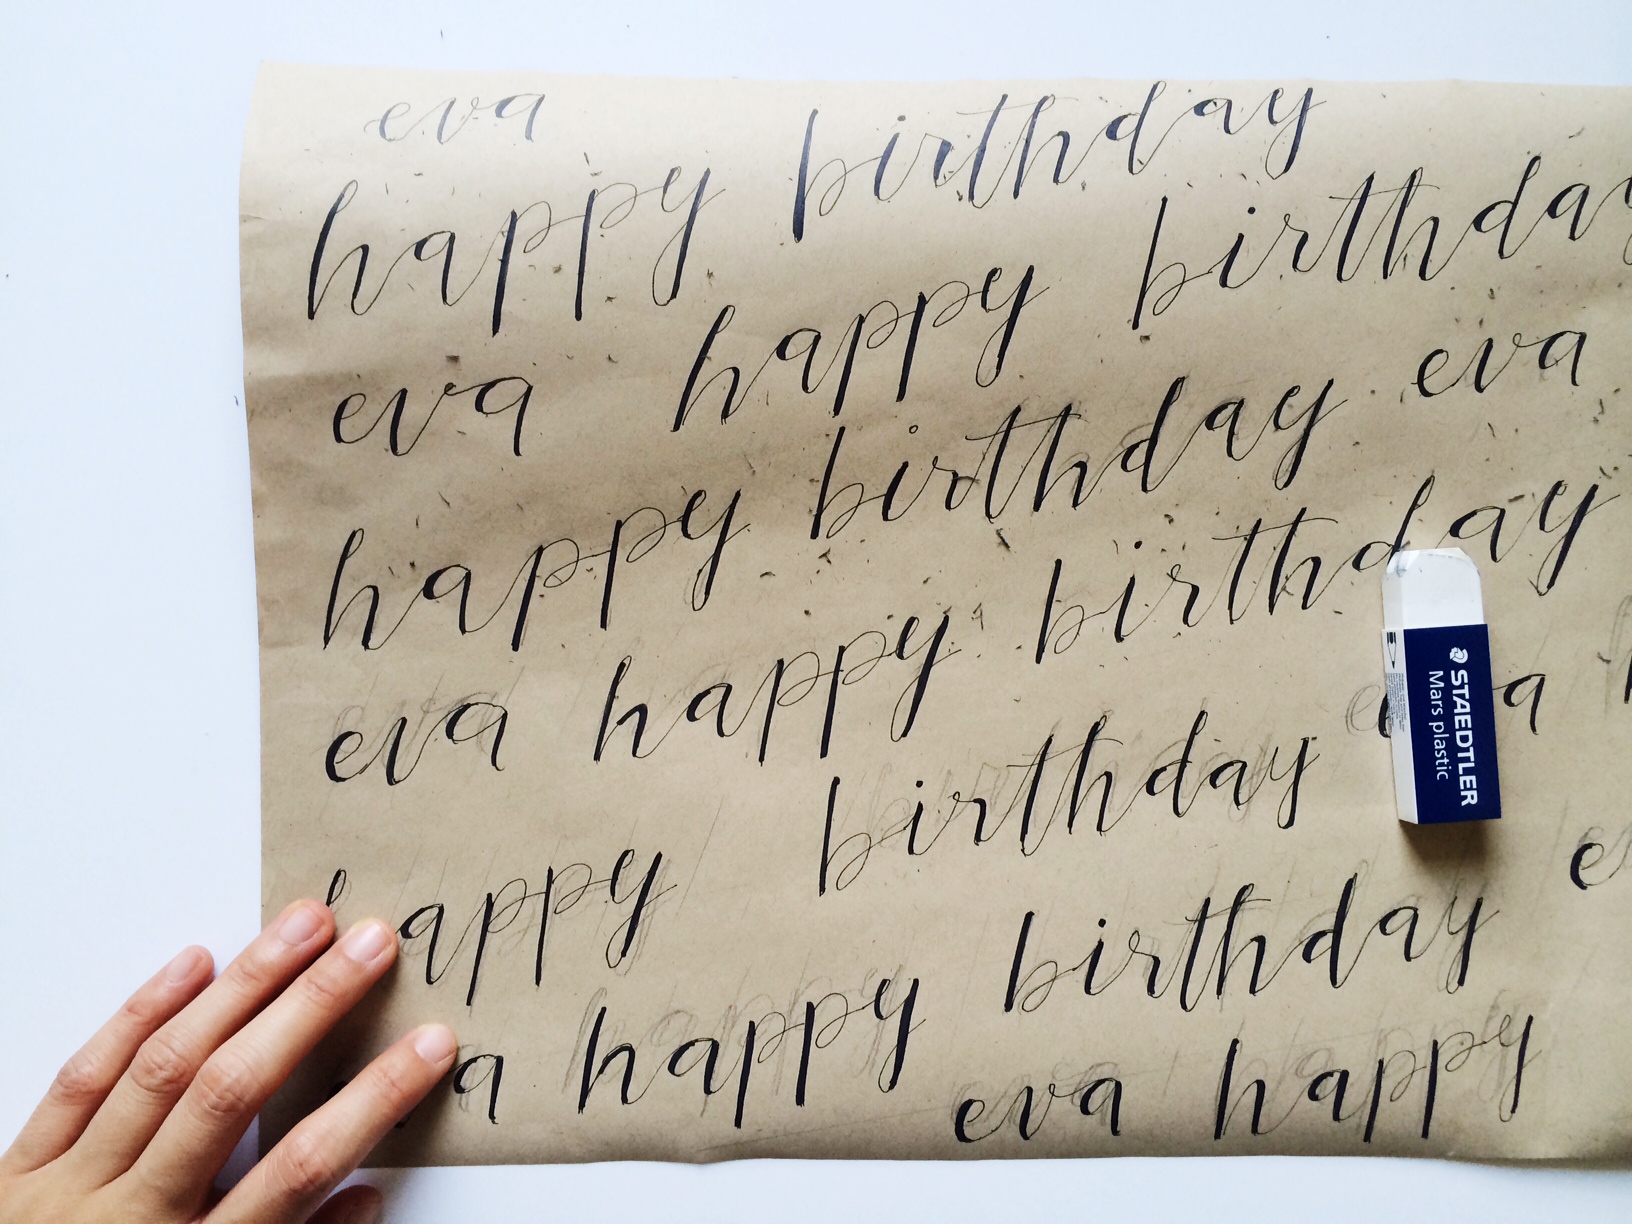 eva
happy birthday
eva happy birthday
happy birthday eva
eva happy birthday
happy birthday
happy birthday
eva happy
STAEDTLER
Mars plastic